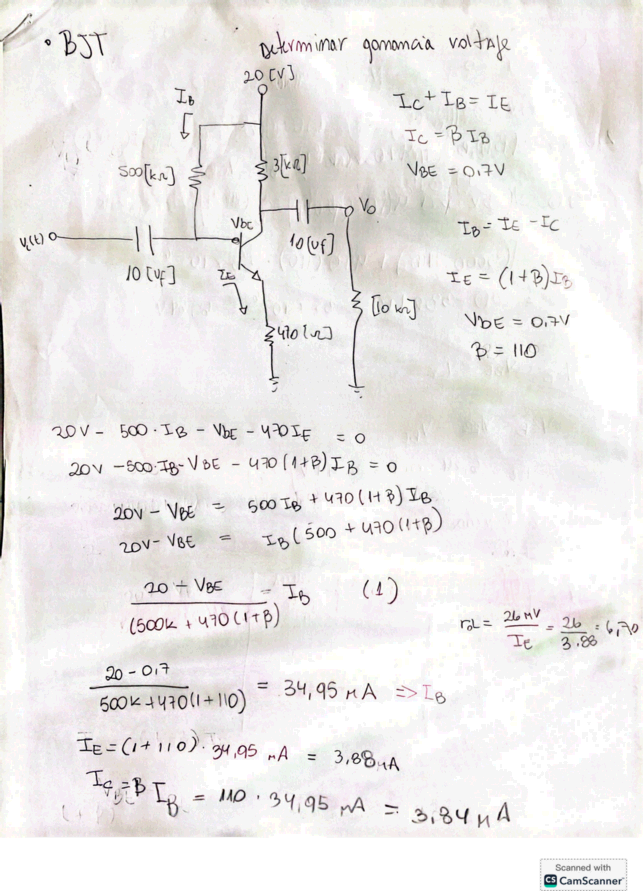 • BJT
Determinar ganancia voltaje
20[V]
IB
IC + IB = IE
IC = B IB
VBE = 0,7V
500[kΩ]
3[kΩ]
Vbc
Vo
Vi(t)
10[uf]
10[uf]
IE
[10 kΩ]
470[Ω]
IB = IE - IC
IE = (1+B)IB
VbE = 0,7V
B = 110
20V - 500·IB - VbE - 470IE = 0
20V - 500·IB - VBE - 470(1+B)IB = 0
20V - VBE = 500IB + 470(1+B)IB
20V - VBE = IB(500 + 470(1+B)
20 ÷ VBE
(500k + 470(1+B)
= IB (1)
26 MV
IE
= 26
3.88
= 6,70
20 - 0,7
500k+470(1+110)
= 34,95 MA => IB
IE = (1+110)·34,95 MA = 3,88MA
IC = B IB = 110 · 34,95 MA = 3,84 MA
Scanned with
CS CamScanner